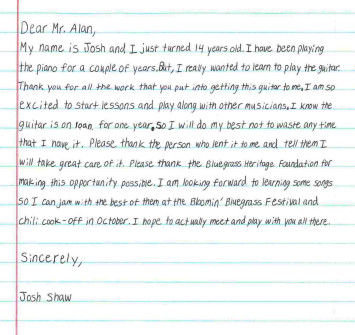 Dear Mr. Alan,
My name is Josh and I just turned 14 years old. I have been playing
the piano for a couple of years. But, I really wanted to learn to play the guitar.
Thank you for all the work that you put into getting this guitar to me. I am so
excited to start lessons and play along with other musicians. I know the
guitar is on loan for one year. So I will do my best not to waste any time
that I have it. Please thank the person who lent it to me and tell them I
will take great care of it. Please thank the Bluegrass Heritage Foundation for
making this opportunity possible. I am looking forward to learning some songs
so I can jam with the best of them at the Bloomin' Bluegrass Festival and
chili cook-off in October. I hope to actually meet and play with you all there.
Sincerely,
Josh Shaw